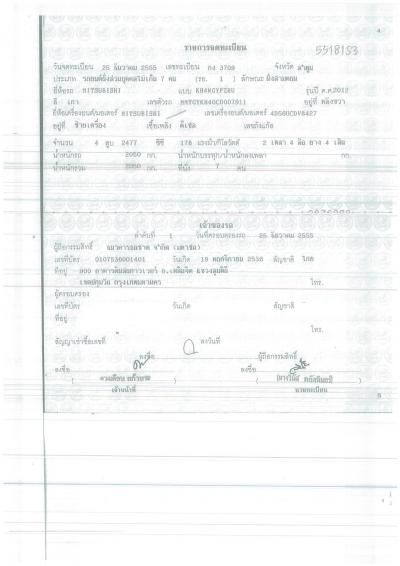 4
รายการจดทะเบียน
5518153
วันจดทะเบียน 25 ธันวาคม 2555 เลขทะเบียน กง 3709 จังหวัด ลำพูน
ประเภท รถยนต์นั่งส่วนบุคคลไม่เกิน 7 คน (รย. 1 ) ลักษณะ นั่งสามตอน
ยี่ห้อรถ MITSUBISHI แบบ KH4WGYPZRU รุ่นปี ค.ศ. 2012
สี เทา เลขตัวรถ อยู่ที่
ยี่ห้อเครื่องยนต์/มอเตอร์ MITSUBISHI เลขเครื่องยนต์/มอเตอร์ 4D56UCDV8427
อยู่ที่ ซ้ายเครื่อง เชื้อเพลิง ดีเซล เลขถังแก๊ส
จำนวน 4 สูบ 2477 ซีซี 178 แรงม้า/กิโลวัตต์ 2 เพลา 4 ล้อ ยาง 4 เส้น
น้ำหนักรถ 2050 กก. น้ำหนักบรรทุก/น้ำหนักลงเพลา กก.
น้ำหนักรวม 2050 กก. ที่นั่ง 7 คน
เจ้าของรถ
ลำดับที่ 1 วันที่ครอบครองรถ 25 ธันวาคม 2555
ผู้ถือกรรมสิทธิ์ ธนาคารธนชาต จำกัด (มหาชน)
เลขที่บัตร 0107536001401 วันเกิด 19 พฤศจิกายน 2536 สัญชาติ ไทย
ที่อยู่ 900 อาคารต้นสนทาวเวอร์ ถ.เพลินจิต แขวงลุมพินี
เขตปทุมวัน กรุงเทพมหานคร โทร.
ผู้ครอบครอง
เลขที่บัตร วันเกิด สัญชาติ
ที่อยู่
โทร.
สัญญาเช่าซื้อเลขที่ ลงวันที่
ลงชื่อ ผู้ถือกรรมสิทธิ์
ลงชื่อ ลงชื่อ
( ) ( )
เจ้าหน้าที่ นายทะเบียน
5